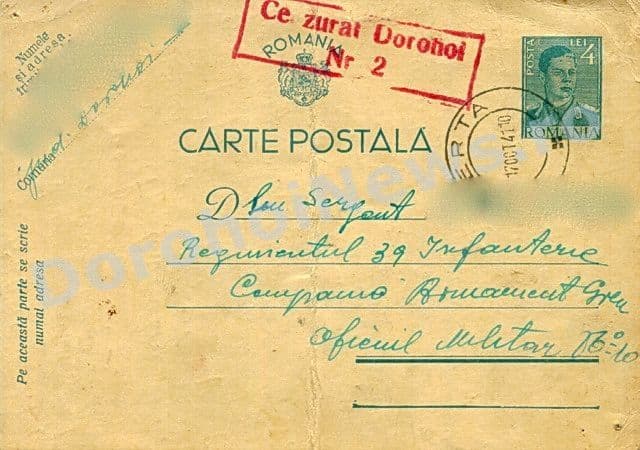 Cenzurat Dorohoi
Nr 2
ROMANIA
POSTA LEI 4
ROMANIA
CARTE POSTALĂ
Numele
și adresa
Comuna
Jud. Dorohoi
ERTA
Dlui Sergent
Regimentul 39 Infanterie
Compania Armament Greu
Oficiul Militar No 10
Pe această parte se scrie
numai adresa
DorohoiNews.